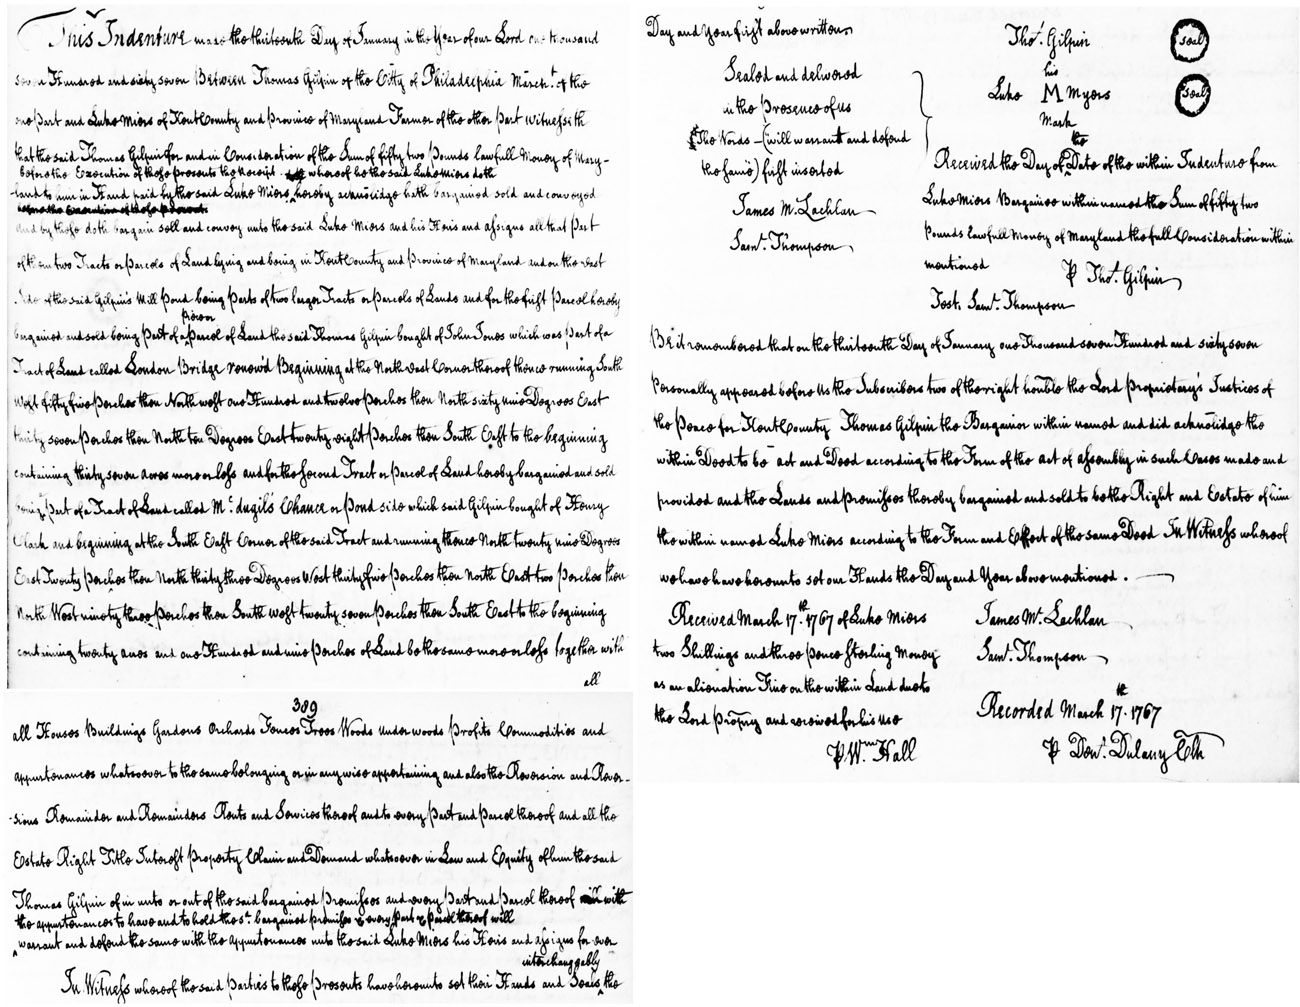 This Indenture made the thirteenth Day of January in the Year of our Lord one thousand
seven Hundred and sixty seven Between Thomas Gilpin of the Citty of Philadelphia March.t of the
one Part and Luke Miers of Kent County and Province of Maryland Farmer of the other Part witnesseth
that the said Thomas Gilpin for and in Consideration of the Sum of fifty two Pounds lawfull Money of Mary-
before the Execution of these presents the Receipt whereof he the said Luke Miers doth
-land to him in Hand paid by the said Luke Miers hereby acknowlidge hath bargained sold and conveyed
before the Execution of these presents
and by these doth bargain sell and convey unto the said Luke Miers and his Heirs and assigns all that Part
of them two Tracts or Parcels of Land lying and being in Kent County and Province of Maryland and on the west
Side of the said Gilpin's Mill Pond being Parts of two larger Tracts or Parcels of Lands and for the first Parcel hereby
piece or
bargained and sold being Part of a Parcel of Land the said Thomas Gilpin bought of John Jones which was Part of a
Tract of Land called London Bridge renew'd Beginning at the North East Corner thereof thence running South
West fifty five Perches then North west one Hundred and twelve Perches then North sixty nine Degrees East
thirty seven Perches then North ten Degrees East twenty eight Perches then South East to the beginning
containing thirty seven acres more or less and for the second Tract or Parcel of Land hereby bargained and sold
being Part of a Tract of Land called Mc.dugil's Chance or Pond side which said Gilpin bought of Henry
Clark and beginning at the South East Corner of the said Tract and running thence North twenty nine Degrees
East Twenty Perches then North thirty three Degrees West thirty five Perches then North East two Perches then
North West ninety three Perches then South west twenty seven Perches then South East to the beginning
containing twenty acres and one Hundred and nine Perches of Land be the same more or less together with
all
389
all Houses Buildings Gardens Orchards Fences Trees Woods underwoods Profits Commodities and
appurtenances whatsoever to the same belonging or in any wise appertaining and also the Reversion and Rever-
-sions Remainder and Remainders Rents and Services thereof and to every Part and Parcel thereof and all the
Estate Right Title Interest Property Claim and Demand whatsoever in Law and Equity of him the said
Thomas Gilpin of in unto or out of the said bargained Premisses and every Part and Parcel thereof with
the appurtenances to have and to hold the sd. bargained premises & every Part & Parcel thereof will
warrant and defend the same with the appurtenances unto the said Luke Miers his Heirs and assigns for ever
interchangably
In Witness whereof the said Parties to these Presents have hereunto set their Hands and Seals the
Day and Year first above written
Sealed and delivered
in the Presence of us
The Words (will warrant and defend
the same) first inserted
James McLachlan
Saml. Thompson
Tho.s Gilpin seal
his
Luke M Myers seal
Mark
the
Received the Day of Date of the within Indenture from
Luke Miers Bargainee within named the Sum of fifty two
Pounds lawfull Money of Maryland the full Consideration within
mentioned ⅌ Tho.s Gilpin
Test. Saml. Thompson
Be it remembered that on the thirteenth Day of January one Thousand seven Hundred and sixty seven
Personally appeared before us the Subscribers two of the right honble the Lord Proprietary's Justices of
the Peace for Kent County Thomas Gilpin the Bargainor within named and did acknowlidge the
within Deed to be act and Deed according to the Form of the act of assembly in such Cases made and
provided and the Lands and Premisses thereby bargained and sold to be the Right and Estate of him
the within named Luke Miers according to the Form and Effect of the same Deed In Witness whereof
we have have hereunto set our Hands the Day and Year above mentioned.
Received March 17.th 1767 of Luke Miers
two Shillings and three Pence Sterling Money
as an alienation Fine on the within Land due to
the Lord Proprry and received for his Use
⅌ Wm Hall
James Mc.Lachlan
Saml. Thompson
Recorded March 17.th 1767
⅌ Denl. Dulany Clk